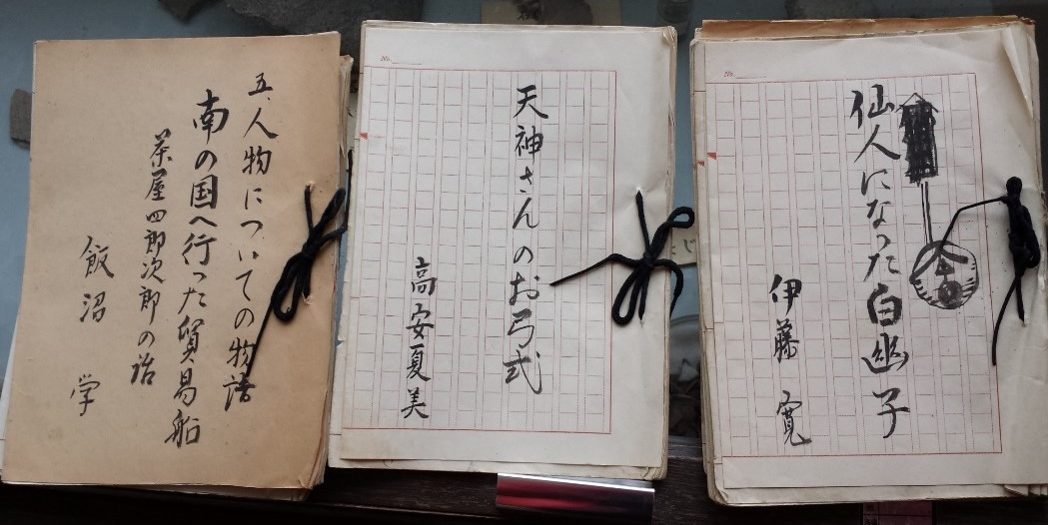 五、人物についての物語
南の国へ行った貿易船
茶屋四郎次郎の話
飯沼 学
天神さんのお弓式
高安夏美
仙人になった白幽子
伊藤 寛